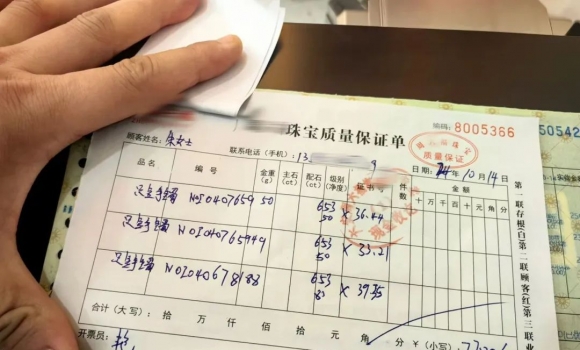 珠宝质量保证单
编码: 8005366
质量保证
顾客姓名: 朱女士
联系电话(手机): 13 9
日期: 24年10月14日
品名 编号 金重(g) 主石(ct) 配石(ct) 级别(净度) 证书号 件数 金额
十 万 千 百 十 元 角 分
足金手镯 NO10407659 50 653 50 × 36.44
足金手镯 653 50 × 33.21
足金手镯 653
合计(大写): 拾 万 仟 佰 拾 元 角 分 ¥(小写):
开票员:
第一联存根(白)第二联顾客(红)第三联业
50542